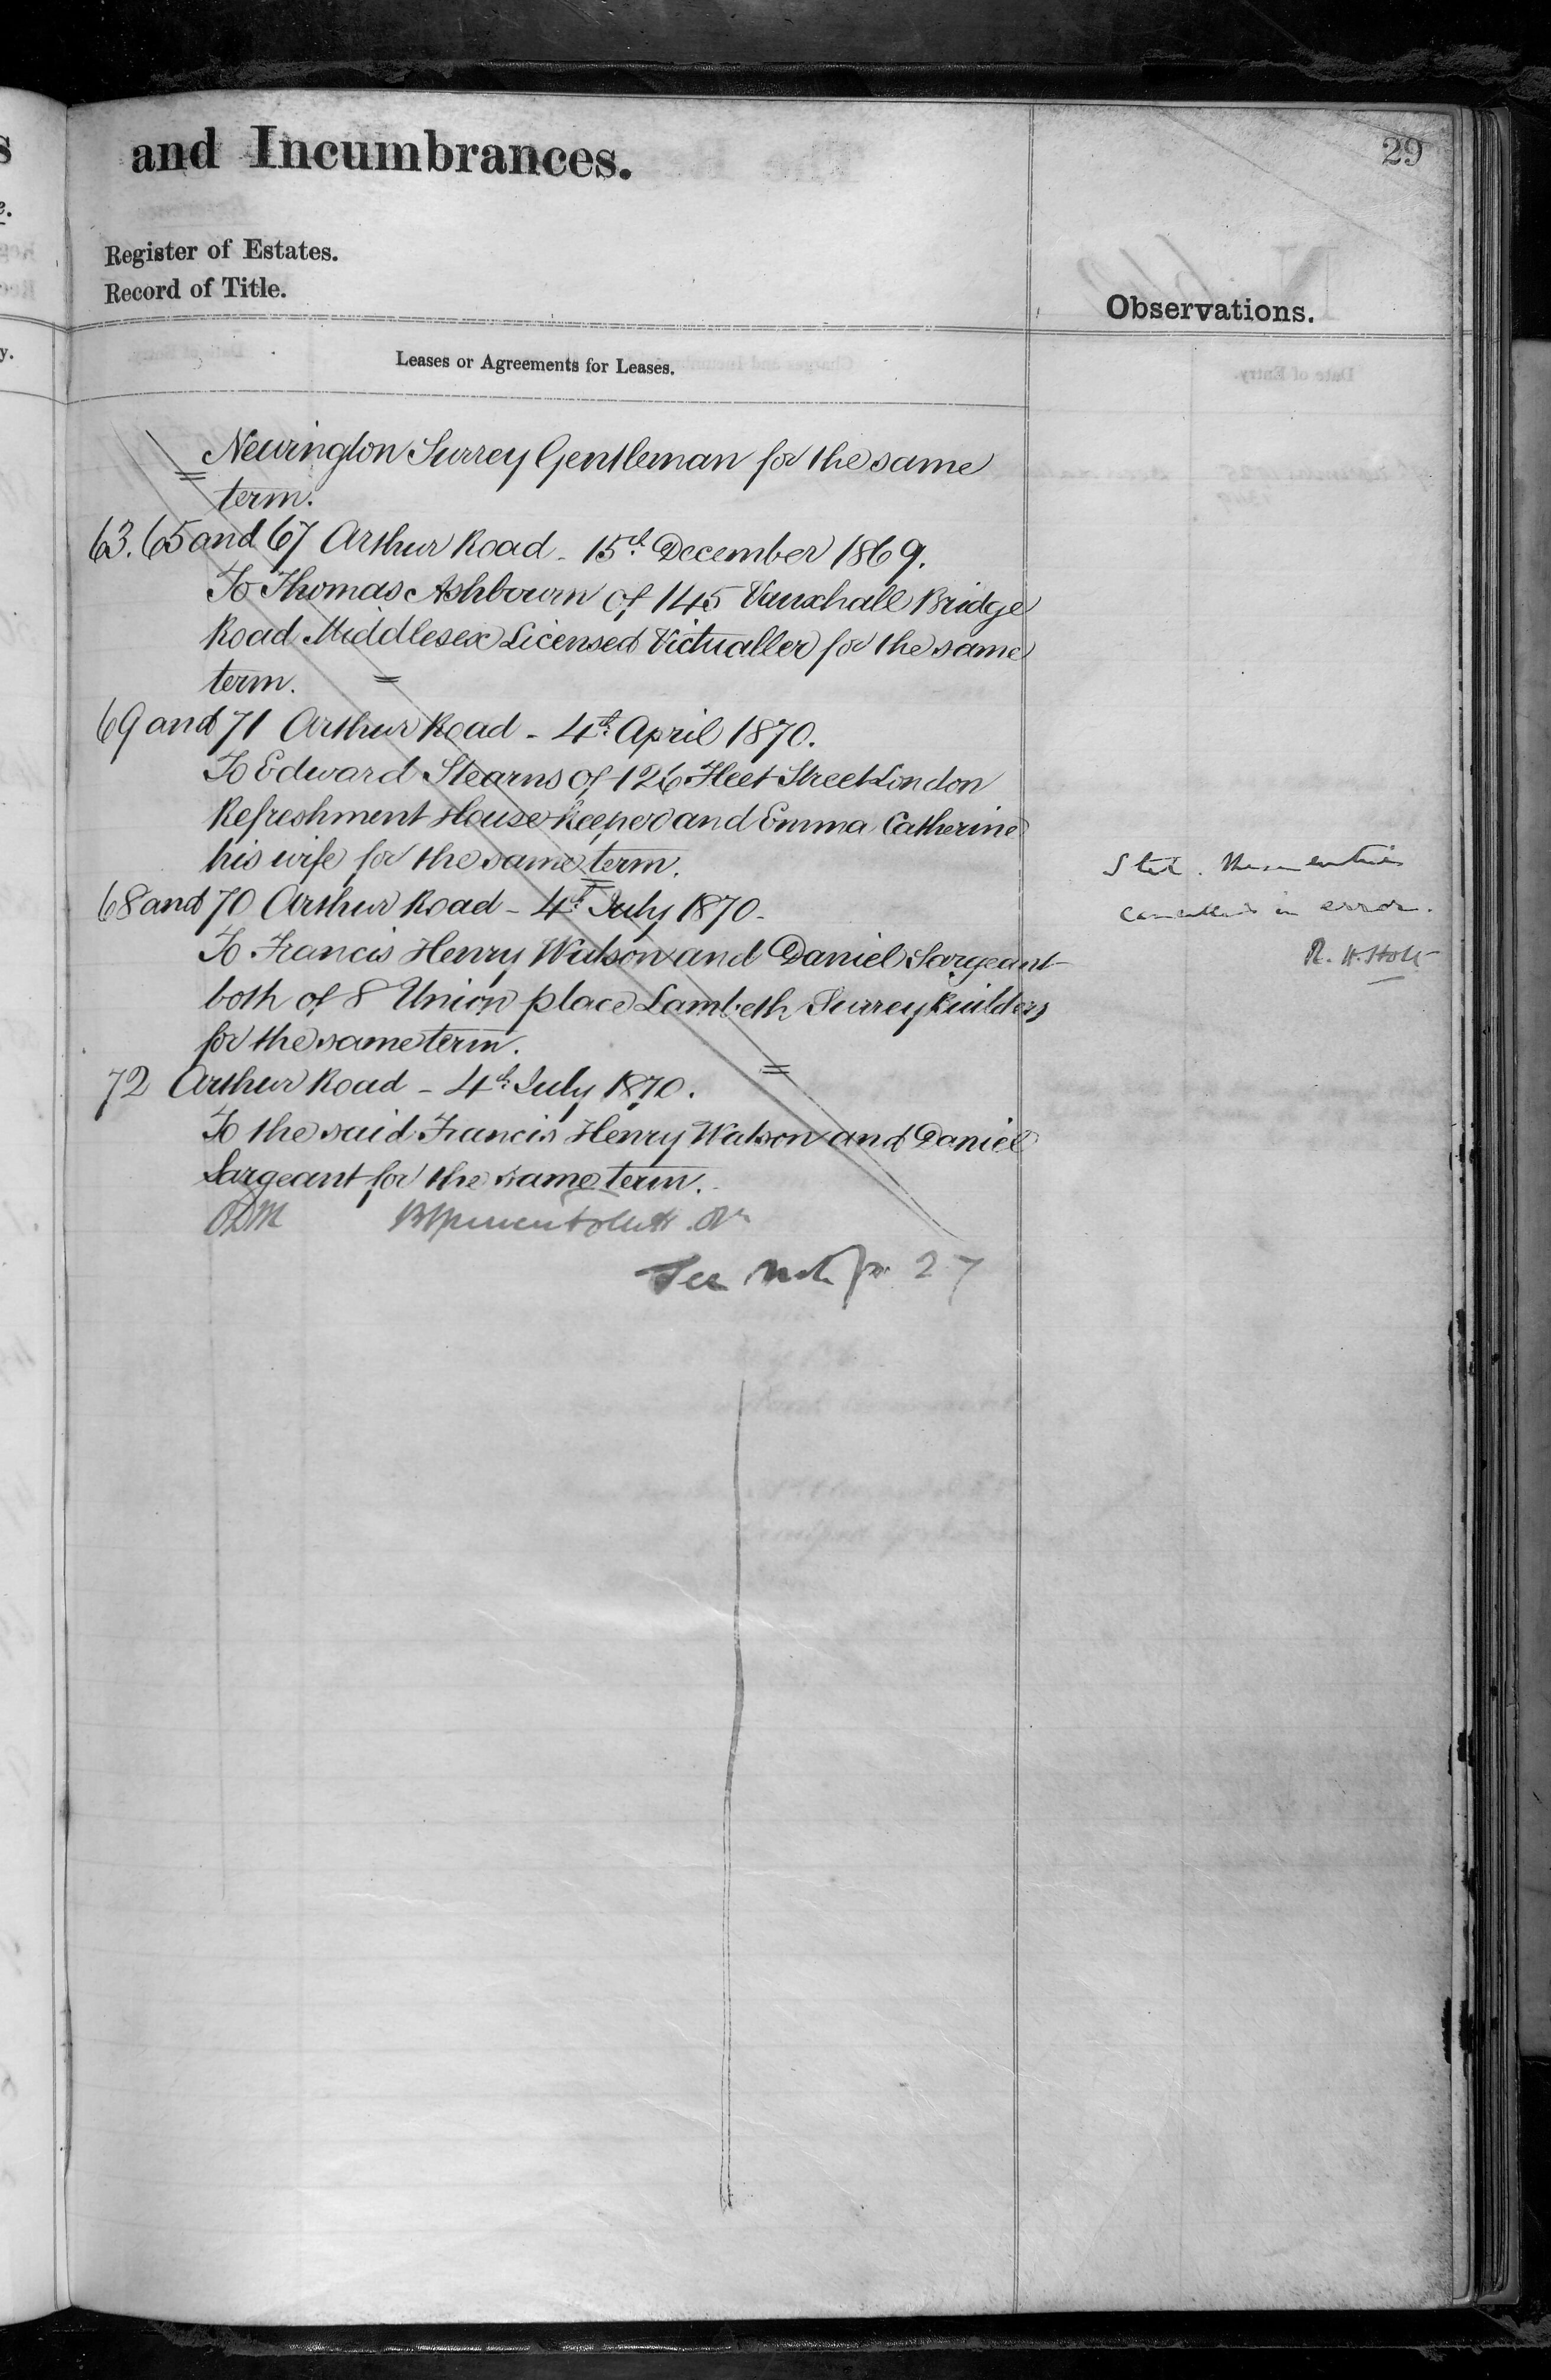 and Incumbrances.
29
Register of Estates.
Record of Title.
Observations.
Leases or Agreements for Leases.
Newington Surrey Gentleman for the same
term.
63. 65 and 67 Arthur Road - 15th December 1869.
To Thomas Ashbourn of 145 Vauxhall Bridge
Road Middlesex Licensed Victualler for the same
term.
69 and 71 Arthur Road - 4th April 1870.
To Edward Stearns of 126 Fleet Street London
Refreshment House Keeper and Emma Catherine
his wife for the same term.
68 and 70 Arthur Road - 4th July 1870.
To Francis Henry Watson and Daniel Sargeant
both of 8 Union place Lambeth Surrey Builders
for the same term.
72 Arthur Road - 4th July 1870.
To the said Francis Henry Watson and Daniel
Sargeant for the same term.
See note p. 27
Stet. These entries
cancelled in error.
R. H. Holt